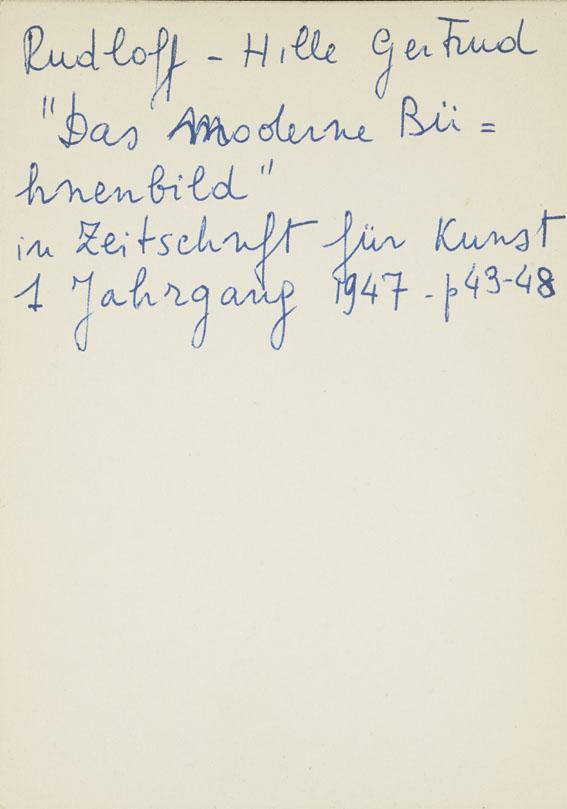 Rudloff - Hille Gertrud
"Das Moderne Bü =
hnenbild"
in Zeitschrift für Kunst
1 Jahrgang 1947 - p 43-48